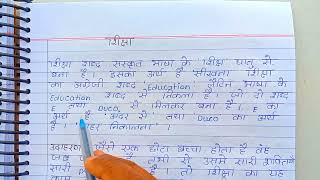 शिक्षा
शिक्षा शब्द संस्कृत भाषा के शिक्ष धातु से
बना है। इसका अर्थ है सीखना शिक्षा
का अंग्रेजी शब्द Education लैटिन भाषा के
Education शब्द से निकला है। जो दो शब्द
E तथा Duco, से मिलकर बना है। E का
अर्थ है 'अंदर से' तथा 'Duco' का अर्थ
है 'बाहर निकालना'।
उदाहरण जैसे एक छोटा बच्चा होता है वह
जब है तभी से उसमें सारी शक्तियां
सारी है। तो शिक्षा का यह
काम